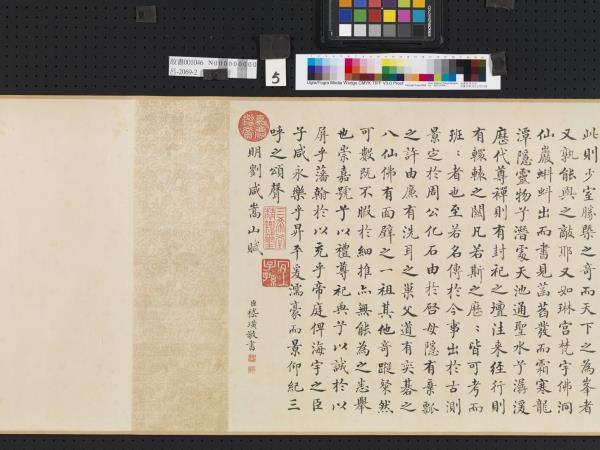 故書001046 N000000000
呂-2069-2
5
此則少室勝槩之奇而天下之為峯者
又孰能與之敵耶又如琳宮梵宇佛洞
仙巖蝌蚪出而書見菡萏發而霜寒龍
潭隱靈物于潛處天池通聖水于潺湲
歷代尊禪則有封祀之壇往來徑行則
有轘轅之關凡若斯之應﹕皆可考而
班﹕者也至若名傳於今事出於古測
景定於周公化石由於啓母隱有棄瓢
之許由廉有洗耳之巢父道有奕碁之
八仙佛有面壁之一祖其他奇蹤槩然
可數既不暇於細推亦無能為之悉舉
也崇嘉號于以禮尊祀典于以誠於以
屏乎藩翰於以充乎帝庭俾海宇之臣
子咸永樂乎昇平爰濡豪而景仰紀三
呼之頌聲
明劉咸嵩山賦
臣嵇璜敬書